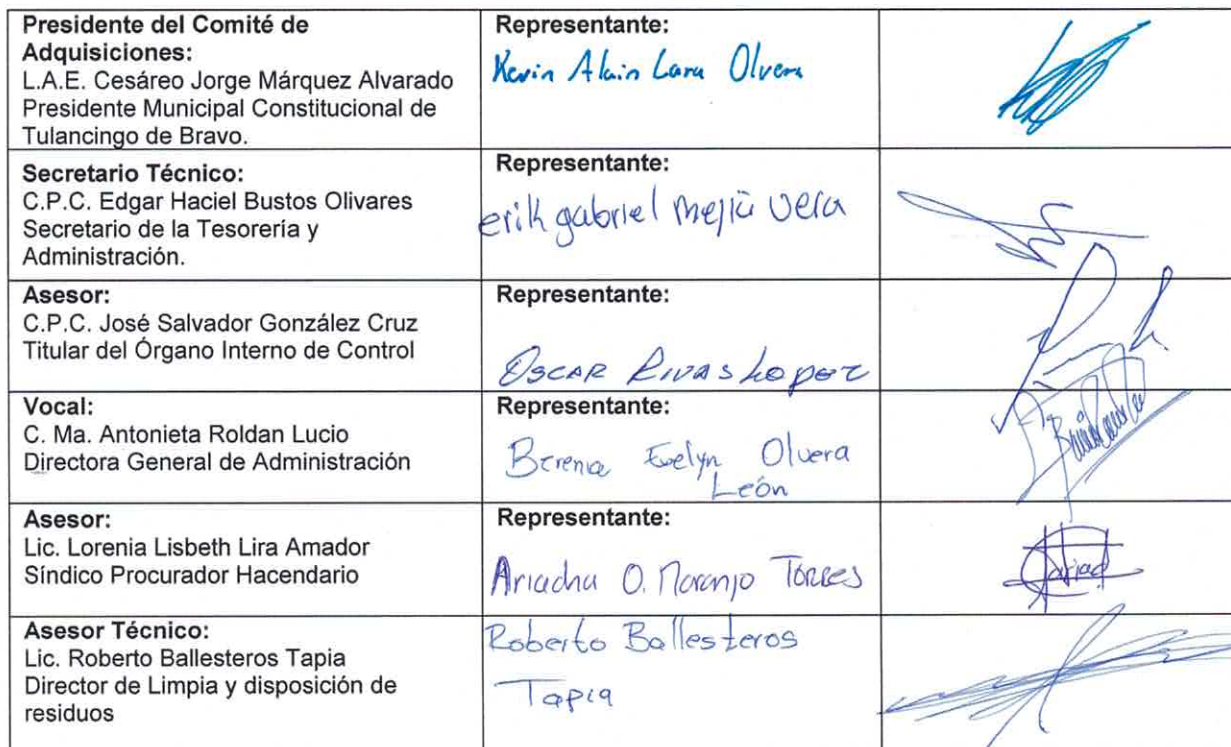 Presidente del Comité de
Adquisiciones:
L.A.E. Cesáreo Jorge Márquez Alvarado
Presidente Municipal Constitucional de
Tulancingo de Bravo.
Representante:
Kevin Alain Lara Olvera
Secretario Técnico:
C.P.C. Edgar Haciel Bustos Olivares
Secretario de la Tesorería y
Administración.
Representante:
erik gabriel mejía vera
Asesor:
C.P.C. José Salvador González Cruz
Titular del Órgano Interno de Control
Representante:
OSCAR RIVAS LOPEZ
Vocal:
C. Ma. Antonieta Roldan Lucio
Directora General de Administración
Representante:
Evelyn Olvera
León
Asesor:
Lic. Lorenia Lisbeth Lira Amador
Síndico Procurador Hacendario
Representante:
Ariadna O. Naranjo Torres
Asesor Técnico:
Lic. Roberto Ballesteros Tapia
Director de Limpia y disposición de
residuos
Roberto Ballesteros
Tapia